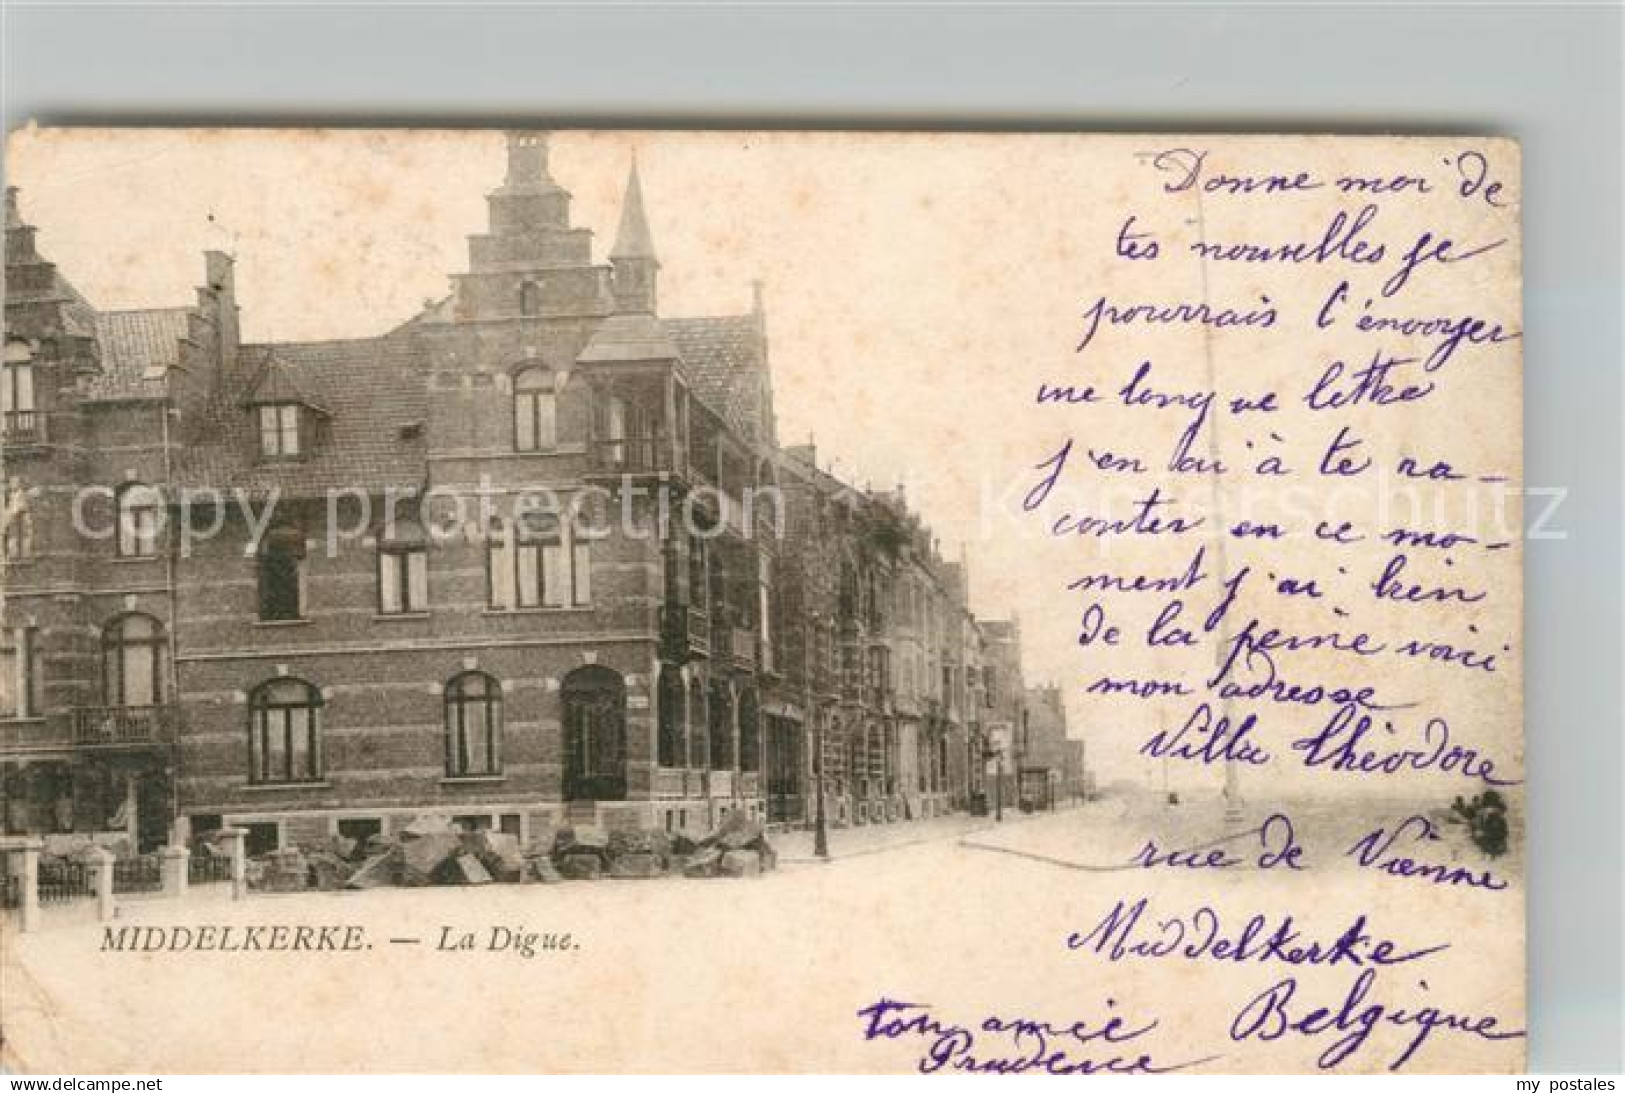 Donne moi de
tes nouvelles je
pourrais t'envoyer
une longue lettre
j'en ai à te ra-
conter en ce mo-
ment j'ai bien
de la peine voici
mon adresse
Villa Théodore
rue de Vienne
Middelkerke
Belgique
ton amie
Prudence
MIDDELKERKE. — La Digue.
copy protection Kopierschutz
my postales